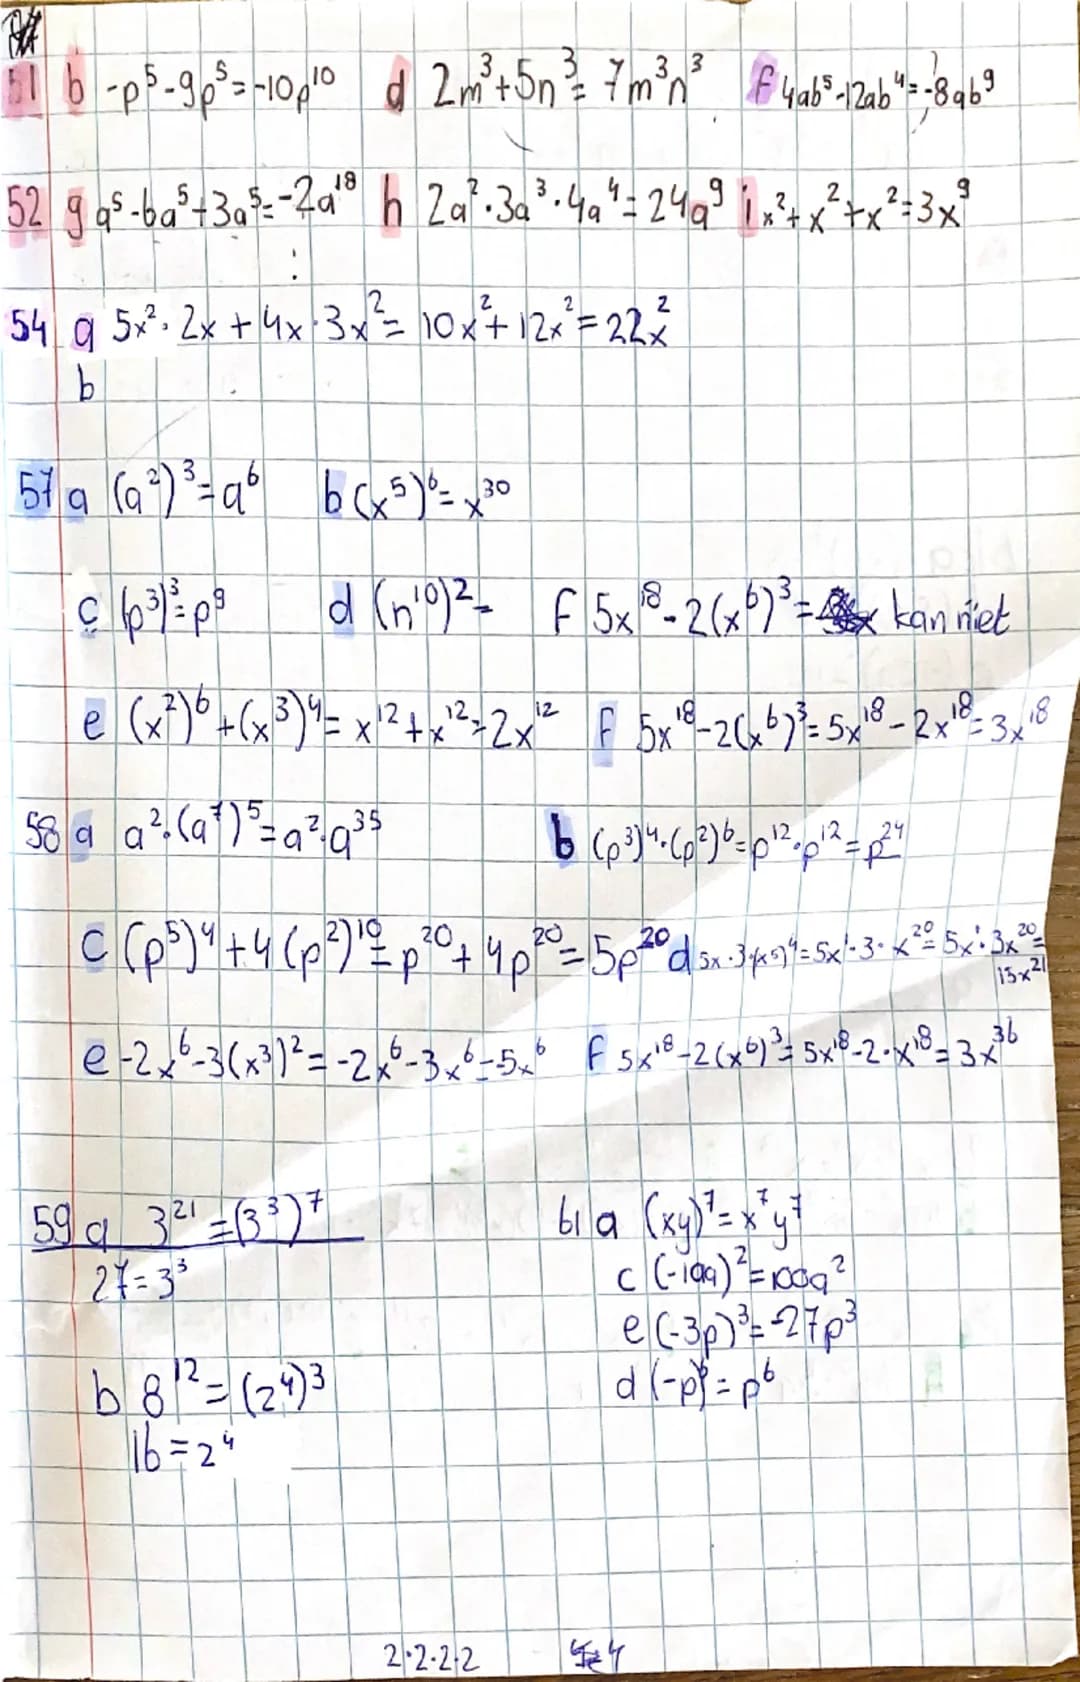 51 b -p⁵-9p⁵=-10p¹⁰ d 2m³+5n³= 7m³n³ f 4ab⁵-12ab⁴=-8ab⁹
52 g a⁵-6a⁵+3a⁵=-2a¹⁸ h 2a²·3a³·4a⁴=24a⁹ i x²+x²+x²=3x⁹
54 a 5x²·2x+4x·3x²= 10x²+12x²=22x²
b
57 a (a²)³=a⁶ b (x⁵)⁶=x³⁰
c (p³)³=p⁹ d (n¹⁰)²= f 5x¹⁸-2(x⁶)³= kan niet
e (x²)⁶+(x³)⁴=x¹²+x¹²=2x¹² f 5x¹⁸-2(x⁶)³=5x¹⁸-2x¹⁸=3x¹⁸
58 a a²·(a⁷)⁵=a²·a³⁵ b (p³)⁴·(p²)⁶=p¹²·p¹²=p²⁴
c (p⁵)⁴+4(p²)¹⁰=p²⁰+4p²⁰=5p²⁰ d 5x·3·(x⁵)⁴=5x¹·3·x²⁰=5x¹·3x²⁰=
15x²¹
e -2x⁶-3(x³)²=-2x⁶-3x⁶=-5x⁶ f 5x¹⁸-2(x⁶)³=5x¹⁸-2·x¹⁸=3x³⁶
59 a 3²¹=(3³)⁷ 61 a (xy)⁷=x⁷y⁷
27=3³ c (-10a)²=100a²
e (-3p)³=-27p³
b 8¹²=(2⁴)³ d (-p)⁶=p⁶
16=2⁴
2·2·2·2 4